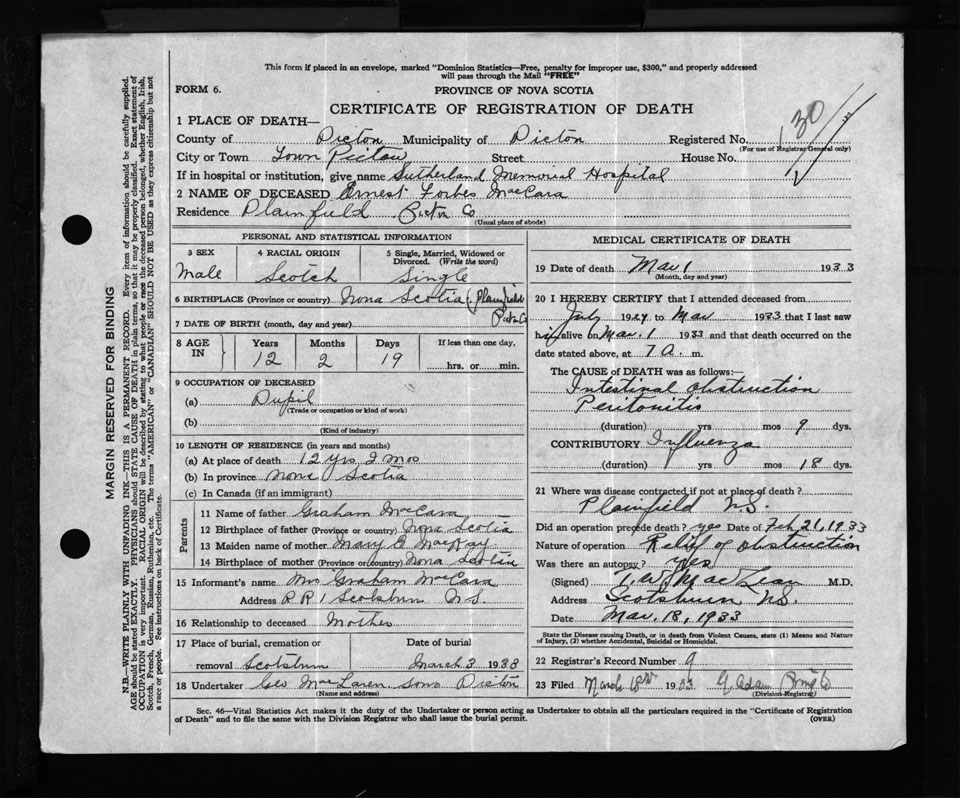 This form if placed in an envelope, marked "Dominion Statistics—Free, penalty for improper use, $300," and properly addressed
will pass through the Mail "FREE"
FORM 6. PROVINCE OF NOVA SCOTIA
CERTIFICATE OF REGISTRATION OF DEATH
1 PLACE OF DEATH—
County of Pictou Municipality of Pictou Registered No. 130
(For use of Registrar General only)
City or Town Town Pictou Street House No.
If in hospital or institution, give name Sutherland Memorial Hospital
2 NAME OF DECEASED Ernest Forbes MacCara
Residence Plainfield Pictou Co
(Usual place of abode)
PERSONAL AND STATISTICAL INFORMATION
3 SEX 4 RACIAL ORIGIN 5 Single, Married, Widowed or Divorced. (Write the word)
Male Scotch Single
6 BIRTHPLACE (Province or country) Nova Scotia (Plainfield
Pictou Co
7 DATE OF BIRTH (month, day and year)
8 AGE IN Years Months Days If less than one day,
12 2 19 hrs. or min.
9 OCCUPATION OF DECEASED
(a) Pupil
(Trade or occupation or kind of work)
(b)
(Kind of industry)
10 LENGTH OF RESIDENCE (in years and months)
(a) At place of death 12 Yrs 2 Mos
(b) In province Nova Scotia
(c) In Canada (if an immigrant)
Parents
11 Name of father Graham McCara
12 Birthplace of father (Province or country) Nova Scotia
13 Maiden name of mother Mary E MacKay
14 Birthplace of mother (Province or country) Nova Scotia
15 Informant's name Mrs Graham McCara
Address R R 1 Scotsburn N S
16 Relationship to deceased Mother
17 Place of burial, cremation or Date of burial
removal Scotsburn March 3 1933
18 Undertaker Geo MacLaren Sons Pictou
(Name and address)
MEDICAL CERTIFICATE OF DEATH
19 Date of death Mar 1 1933
(Month, day and year)
20 I HEREBY CERTIFY that I attended deceased from
July 1924 to Mar 1933 that I last saw
him alive on Mar. 1 1933 and that death occurred on the
date stated above, at 7 a. m.
The CAUSE of DEATH was as follows:—
Intestinal obstruction
Peritonitis
(duration) yrs mos 9 dys.
CONTRIBUTORY Influenza
(duration) yrs mos 18 dys.
21 Where was disease contracted if not at place of death?
Plainfield N.S.
Did an operation precede death? yes Date of Feb, 21, 1933
Nature of operation Relief of obstruction
Was there an autopsy? Yes
(Signed) T. W. MacLean M.D.
Address Scotsburn N.S.
Date Mar. 18, 1933
State the Disease causing Death, or in death from Violent Causes, state (1) Means and Nature
of Injury, (2) whether Accidental, Suicidal or Homicidal.
22 Registrar's Record Number 9
23 Filed March 18th 1933 G Adam
(Division-Registrar)
Sec. 46—Vital Statistics Act makes it the duty of the Undertaker or person acting as Undertaker to obtain all the particulars required in the "Certificate of Registration
of Death" and to file the same with the Division Registrar who shall issue the burial permit. (OVER)
MARGIN RESERVED FOR BINDING
N.B.—WRITE PLAINLY WITH UNFADING INK—THIS IS A PERMANENT RECORD. Every item of information should be carefully supplied.
AGE should be stated EXACTLY. PHYSICIANS should STATE CAUSE OF DEATH in plain terms, so that it may be properly classified. Exact statement of
OCCUPATION is very important. RACIAL ORIGIN will be described by stating to what people or race the deceased person belonged, whether English, Irish,
Scotch, French, German, Russian, Ruthenian, etc. The terms "AMERICAN" or "CANADIAN" SHOULD NOT BE USED as they express citizenship but not
a race or people. See instructions on back of Certificate.